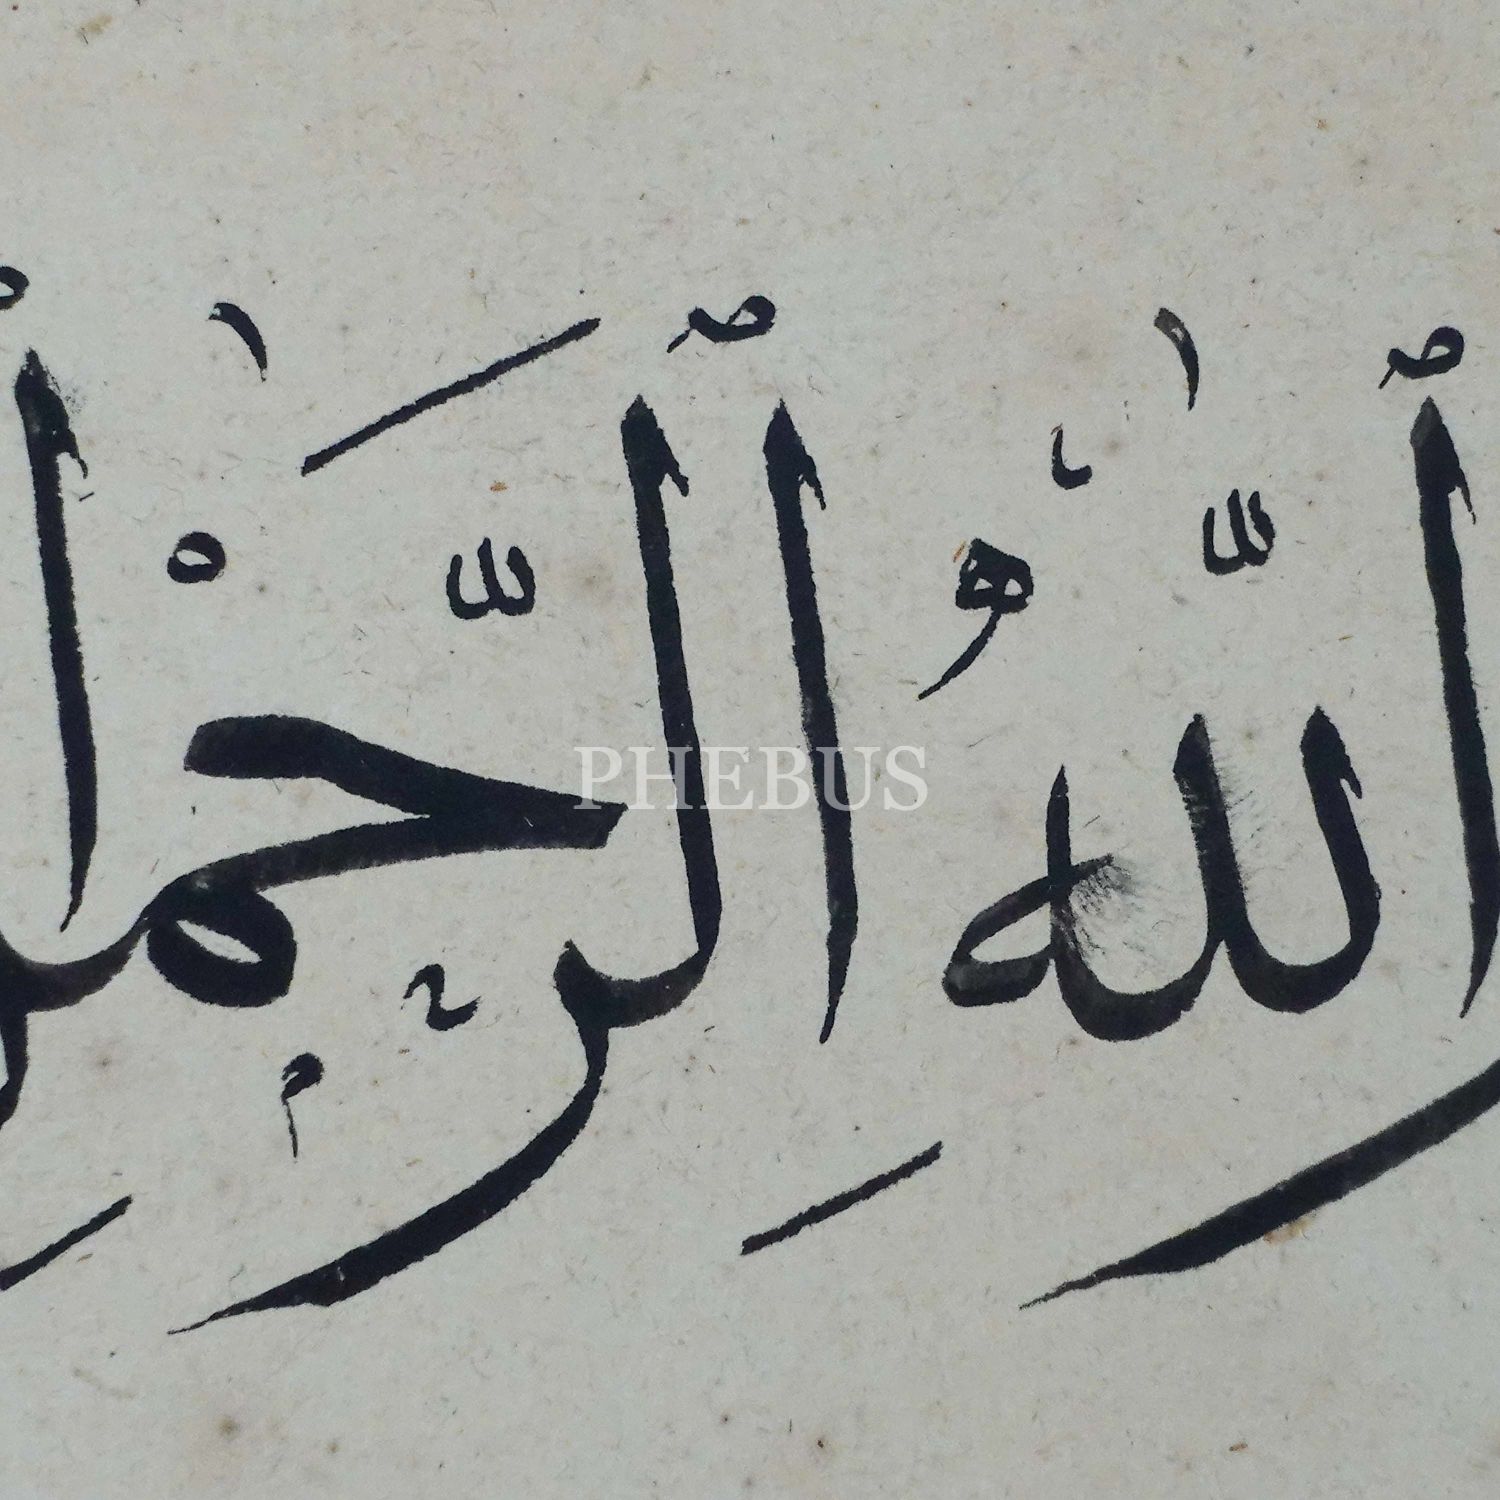 ٱللّٰهِ ٱلرَّحْمٰ
PHEBUS